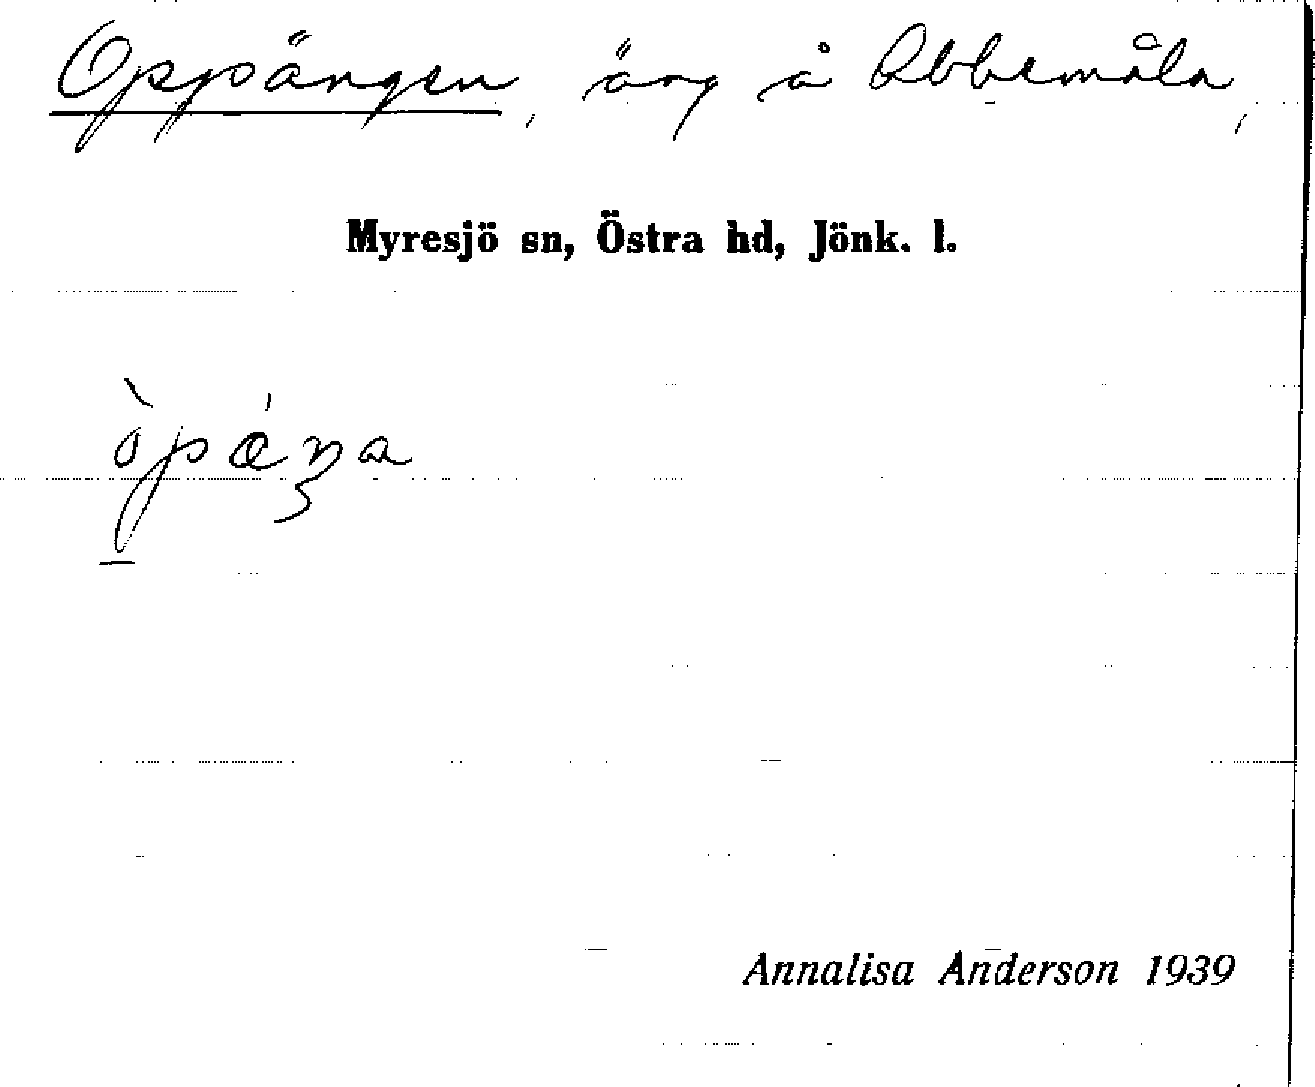 Oppängen, äng å Abbemåla,
Myresjö sn, Östra hd, Jönk. l.
Annalisa Anderson 1939